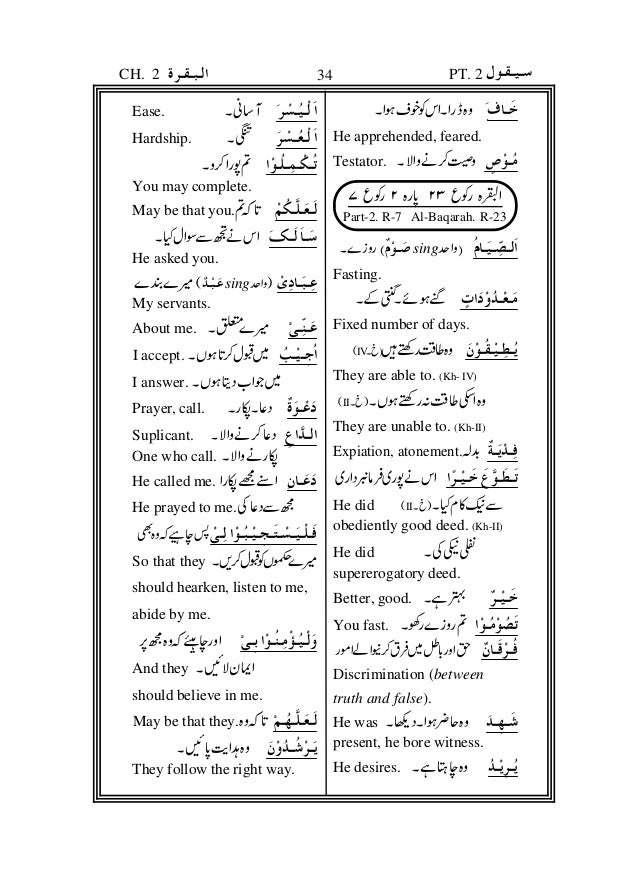 CH. 2 البقرة 34 PT. 2 سيقول
خَافَ وہ ڈرا۔ اس کو خوف ہوا۔
He apprehended, feared.
مُوْصٍ وصیت کرنے والا۔ Testator.
البقرہ رکوع ۲۳ پارہ ۲ رکوع ۷
Part-2. R-7 Al-Baqarah. R-23
اَلصِّيَامُ (واحد sing صَوْمٌ) روزے۔
Fasting.
مَعْدُوْدَاتٍ گنے ہوئے۔ گنتی کے۔
Fixed number of days.
يُطِيْقُوْنَ وہ طاقت رکھتے ہیں (خ۔IV)
They are able to. (Kh- IV)
وہ اسکی طاقت نہ رکھتے ہوں۔ (خ۔II)
They are unable to. (Kh-II)
فِدْيَةٌ بدلہ Expiation, atonement.
تَطَوَّعَ خَيْرًا اس نے پوری فرمانبرداری
سے نیک کام کیا۔ (خ۔II) He did
obediently good deed. (Kh-II)
نفلی نیکی کی۔ He did
supererogatory deed.
خَيْرٌ بہتر ہے۔ Better, good.
تَصُوْمُوْا تم روزے رکھو۔ You fast.
فُرْقَانٌ حق اور باطل میں فرق کرنیوالے امور
Discrimination (between
truth and false).
شَهِدَ وہ حاضر ہوا۔ دیکھا۔ He was
present, he bore witness.
يُرِيْدُ وہ چاہتا ہے۔ He desires.
اَلْيُسْرَ آسانی۔ Ease.
اَلْعُسْرَ تنگی۔ Hardship.
تُكْمِلُوْا تم پورا کرو۔
You may complete.
لَعَلَّكُمْ تاکہ تم May be that you.
سَاَلَكَ اس نے تجھ سے سوال کیا۔
He asked you.
عِبَادِيْ (واحد sing عَبْدٌ) میرے بندے
My servants.
عَنِّيْ میرے متعلق۔ About me.
اُجِيْبُ میں قبول کرتا ہوں۔ I accept.
میں جواب دیتا ہوں۔ I answer.
دَعْوَةٌ دعا۔ پکار۔ Prayer, call.
الدَّاعِ دعا کرنے والا۔ Suplicant.
پکارنے والا۔ One who call.
دَعَانِ اسنے مجھے پکارا He called me.
مجھ سے دعا کی۔ He prayed to me.
فَلْيَسْتَجِيْبُوْا لِيْ پس چاہیے کہ وہ بھی
میرے حکموں کو قبول کریں۔ So that they
should hearken, listen to me,
abide by me.
وَلْيُؤْمِنُوْا بِيْ اور چاہیئے کہ وہ مجھ پر
ایمان لائیں۔ And they
should believe in me.
لَعَلَّهُمْ تاکہ وہ May be that they.
يَرْشُدُوْنَ وہ ہدایت پائیں۔
They follow the right way.